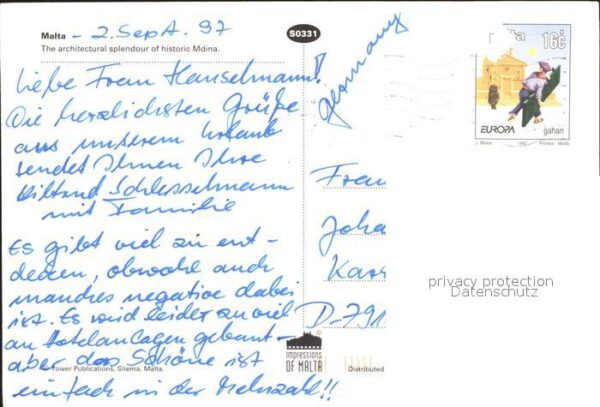 Malta - 2. Sept. 97
The architectural splendour of historic Mdina.
S0331
Malta 16c
EUROPA gahan
Malta 1997 Printex - Malta
Germany
Liebe Frau Hanselmann!
Die herzlichsten Grüße
aus unserem Urlaub
sendet Ihnen Ihre
Schlesselmann
mit Familie
Es gibt viel zu ent-
decken, obwohl auch
manches negative dabei
ist. Es wird leider zu viel
an Hotelanlagen gebaut -
aber das Schöne ist
einfach in der Mehrzahl!!
Frau
Joha
Karr
D-791
privacy protection
Datenschutz
IMPRESSIONS
OF MALTA
Tower Publications, Sliema, Malta.
Distributed